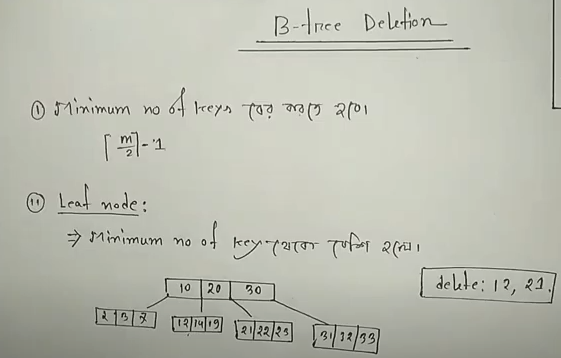 B-tree Deletion
① Minimum no of keys বের করতে হবে।
⌈m/2⌉ - 1
② Leaf node:
⇒ Minimum no of key থেকে বেশি হলে।
delete: 12, 21.
10 20 30
2 3 7 12 14 19 21 22 23 31 32 33